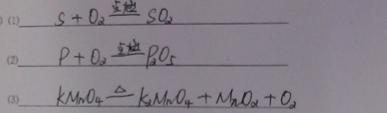 (1) S + O₂ 点燃 SO₂
(2) P + O₂ 点燃 P₂O₅
(3) KMnO₄ △ K₂MnO₄ + MnO₂ + O₂